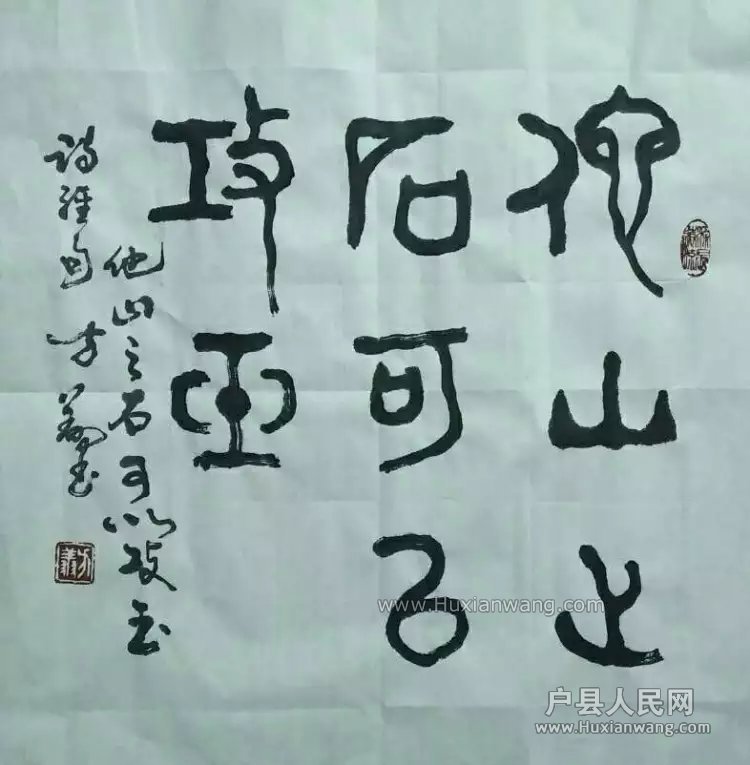 他山之
石可以
攻玉
他山之石可以攻玉
诗经句 方义书
www.Huxianwang.com
户县人民网
www.Huxianwang.com